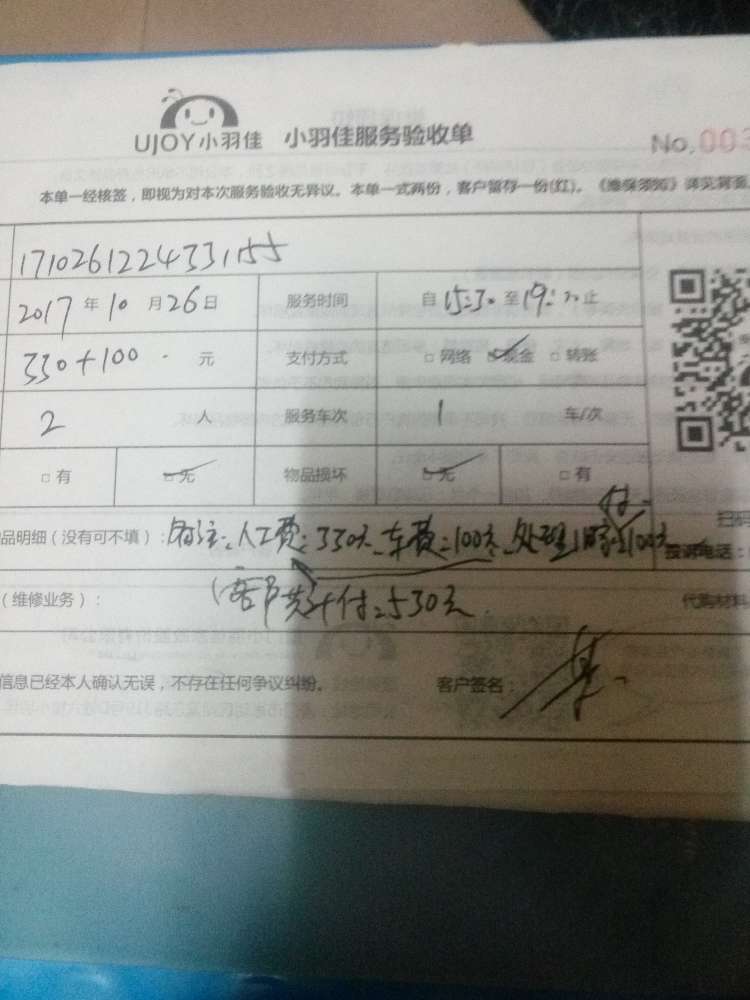 UJOY小羽佳 小羽佳服务验收单
No.003
本单一经核签，即视为对本次服务验收无异议。本单一式两份，客户留存一份(红)。《维保须知》详见背面
171026122433155
2017年10月26日 服务时间 自15:30至19:20止
330+100 元 支付方式 □网络 ☑现金 □转账
2 人 服务车次 1 车/次
□有 ☑无 物品损坏 ☑无 □有
品明细（没有可不填）：备注：人工费：330元、车费：100元、处理 100元 扫码
投诉电话：
（客户共计付：530元
（维修业务）： 代购材料
信息已经本人确认无误，不存在任何争议纠纷。 客户签名：